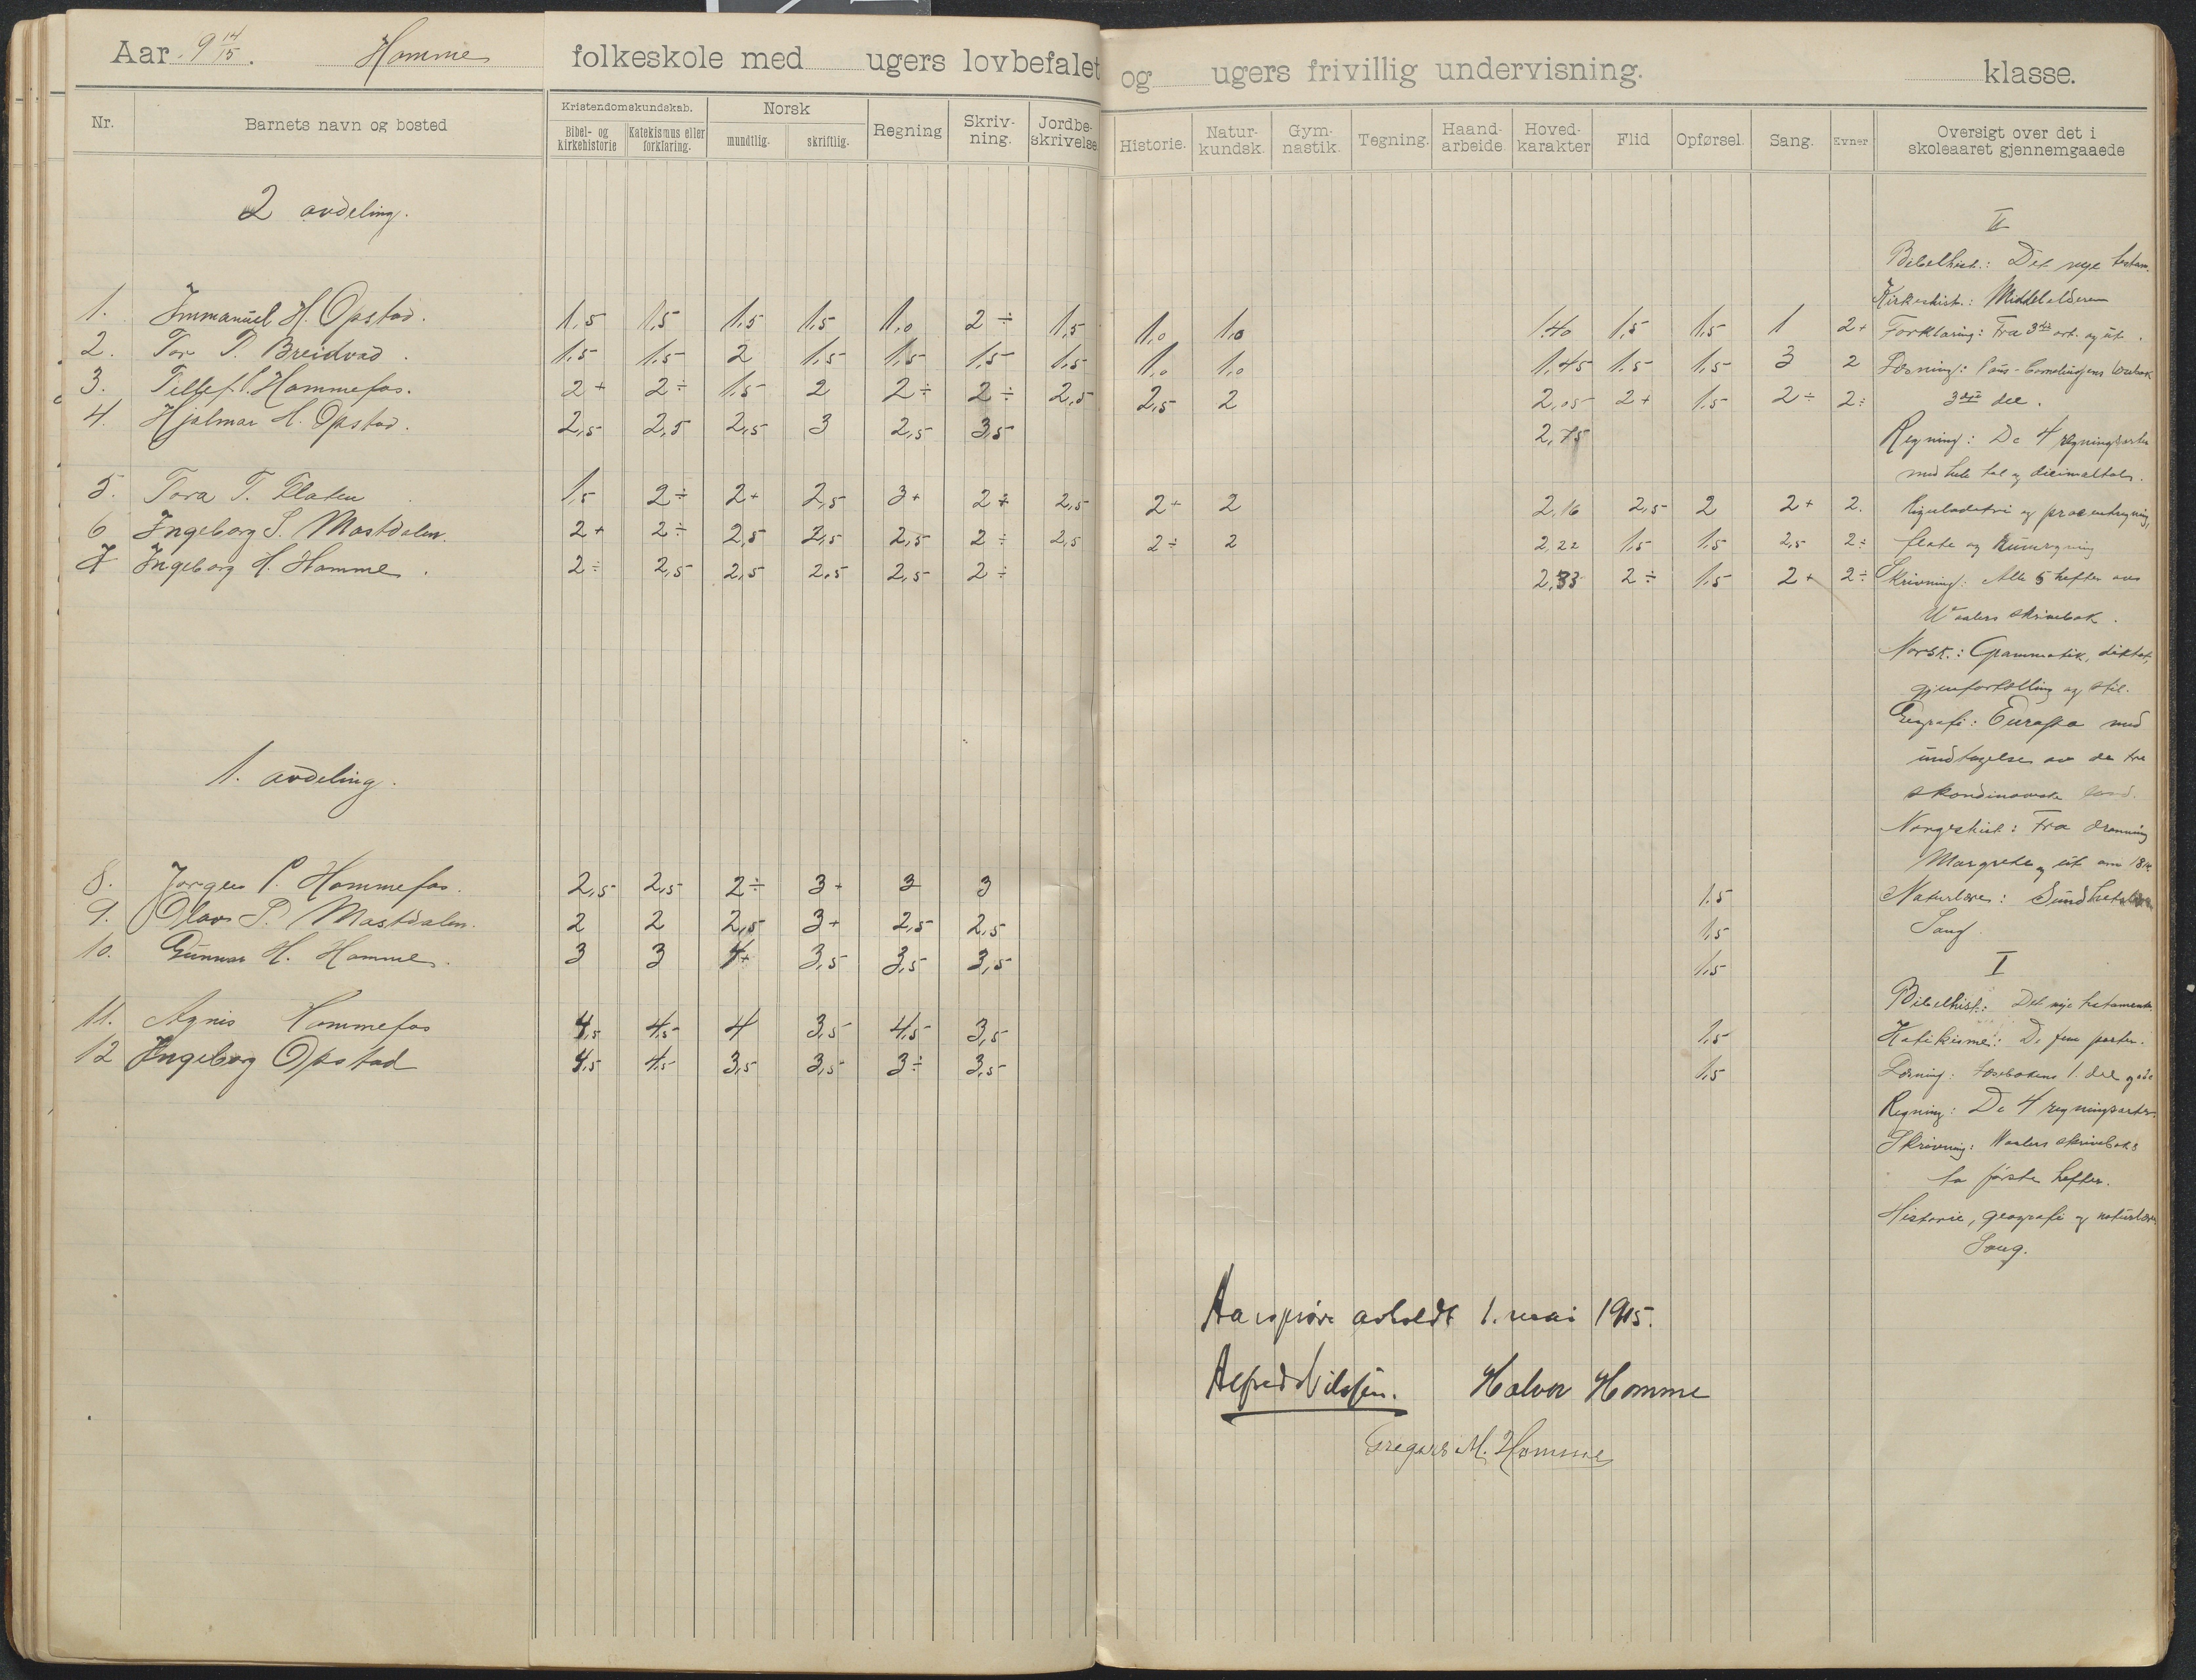 Aar 9 14/15. Homme folkeskole med ugers lovbefalet og ugers frivillig undervisning. klasse.
Nr. Barnets navn og bosted Kristendomskundskab. Bibel- og kirkehistorie Katekismus eller forklaring. Norsk mundtlig. skriftlig. Regning Skriv-ning. Jordbe-skrivelse Historie. Natur-kundsk. Gym-nastik. Tegning. Haand-arbeide. Hoved-karakter Flid Opførsel. Sang. Evner Oversigt over det i skoleaaret gjennemgaaede
2 avdeling.
1. Immanuel H. Opstad. 1,5 1,5 1,5 1,5 1,0 2÷ 1,5 1,0 1,0 1,40 1,5 1,5 1 2+
2. Tor P. Breidvad. 1,5 1,5 2 1,5 1,5 1,5 1,5 1,0 1,0 1,45 1,5 1,5 3 2
3. Tellef P. Hommefos. 2+ 2÷ 1,5 2 2÷ 2÷ 2,5 2,5 2 2,05 2+ 1,5 2÷ 2÷
4. Hjalmar H. Opstad. 2,5 2,5 2,5 3 2,5 3,5 2,75
5. Tora T. Flaten 1,5 2÷ 2+ 2,5 3+ 2÷ 2,5 2+ 2 2,16 2,5 2 2+ 2.
6 Ingeborg S. Mostdalen. 2+ 2÷ 2,5 2,5 2,5 2÷ 2,5 2÷ 2 2,22 1,5 1,5 2,5 2÷
7 Ingeborg H. Homme. 2÷ 2,5 2,5 2,5 2,5 2÷ 2,33 2÷ 1,5 2+ 2÷
1. avdeling.
8. Jørgen P. Hommefos. 2,5 2,5 2÷ 3+ 3 3 1,5
9. Olav P. Mostdalen. 2 2 2,5 3+ 2,5 2,5 1,5
10. Gunnar H. Homme. 3 3 4+ 3,5 3,5 3,5 1,5
11. Agnis Hommefos 4,5 4,5 4 3,5 4,5 3,5 1,5
12 Ingeborg Opstad 4,5 4,5 3,5 3,5 3÷ 3,5 1,5
II
Bibelhist.: Det nye testam.
Kirkehist.: Middelalderen
Forklaring: Fra 3die art. og ut.
Læsning: læsebok
3die del.
Regning: De 4 regningsarter
med hele tal og decimaltal.
Reguladetri og procentregning,
flate og rumregning
Skrivning: Alle 5 hefter av
Waalers skrivebok.
Norsk.: Grammatik, diktat,
gjenfortælling og stil.
Geografi: Europa med
undtagelse av de tre
skandinaviske land.
Norgeshist: Fra dronning
Margrete og ut om 1814
Naturlære: Sundhetslære
Sang
I
Bibelhist.: Det nye testamente
Katekisme: De fem parter.
Læsning: Læsebokens 1. del
Regning: De 4 regningsarter.
Skrivning: Waalers skriveboks
to første hefter.
Historie, geografi og naturlære
Sang.
Aarsprøve avholdt 1. mai 1915.
Alfred Nilssen. Halvor Homme
Gregers M. Homme